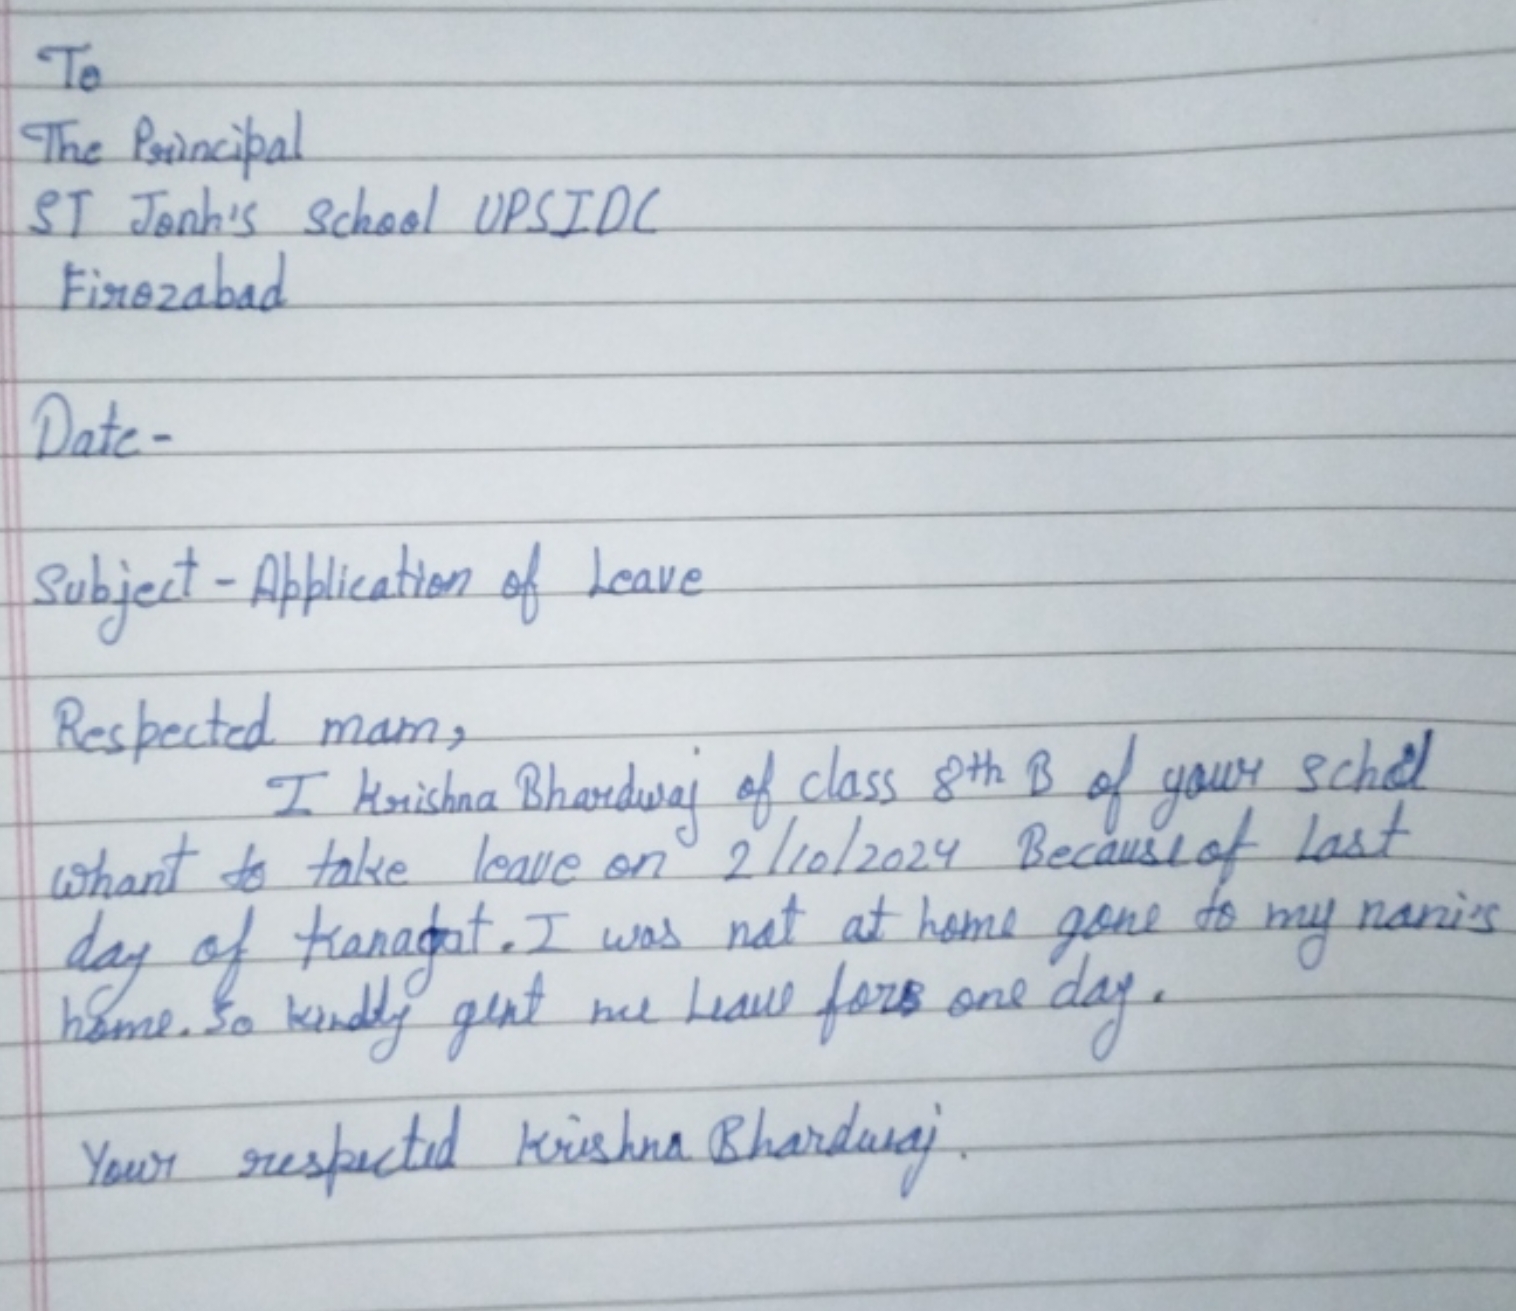 To
The Principal
ST Jonh's School UPSIDC
Firozabad
Date -
Subject - Application of Leave
Respected mam,
I Krishna Bhardwaj of class 8th B of your schol
whant to take leave on 2/10/2024 Because of Last
day of Kanagat. I was not at home gone to my nani's
home. So kindly gent me Leave for one day.
Your respected Krishna Bhardwaj.